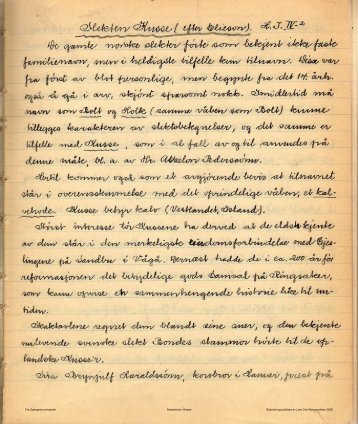 Slekten Kusse (efter Eliesen). H.J. IV-2
De gamle norske slekter førte som bekjent ikke faste
familienavn, men i heldigste tilfelle kun tilnavn. Disse var
fra først av blot personlige, men begynte fra det 14. årh.
også å gå i arv, skjønt sparsomt nok. Imidlertid må
navn som Bolt og Holk (samme våben som Bolt) kunne
tillegges karakteren av slektsbetegnelser, og det samme er
tilfelle med Kusse, som i et fall av og til anvendes på
denne måte, bl. a. av Hr. Atsalon Pederssøns.
Hertil kommer også som et avgjørende bevis at tilnavnet
står i overensstemmelse med det oprindelige våben, et kal-
vehode. Kusse betyr kalv (Vestlandet, Island).
Størst interesse tør Kusserne ha derved at de eldst kjente
av dem står i den merkeligste eiendomsforbindelse med Gjes-
lingene på Sandbu i Vågå. Dernæst hadde de i ca. 200 år før
reformasjonen det betydelige gods Samsal på Ringsaker,
som kan opvise en sammenhengende historie like til nu-
tiden.
Skaktavlene regnet dem blandt sine aner, og den bekjente
nulevende svenske slekt Bondes stammor hørte til de op-
landske Kusse'r.
Sira Brynjulf Haraldssønn, korsbror i Hamar, prest på